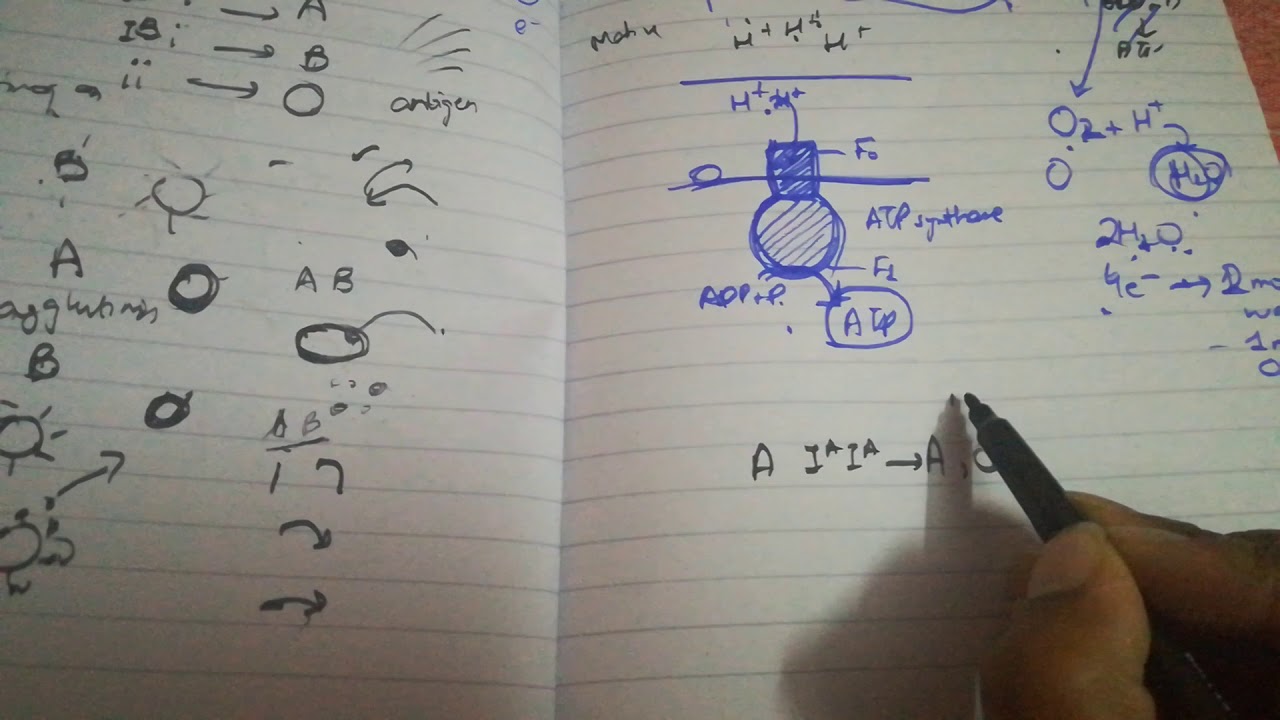 A
IB i → B
ii → O
antigen
B
A
A B
agglutinins
B
A B
e-
H+ H+ H+
H+ H+
F0
ATP synthase
F1
ADP + Pi
ATP
O2 + H+
H2O
2H2O
4e- →
A IA IA → A